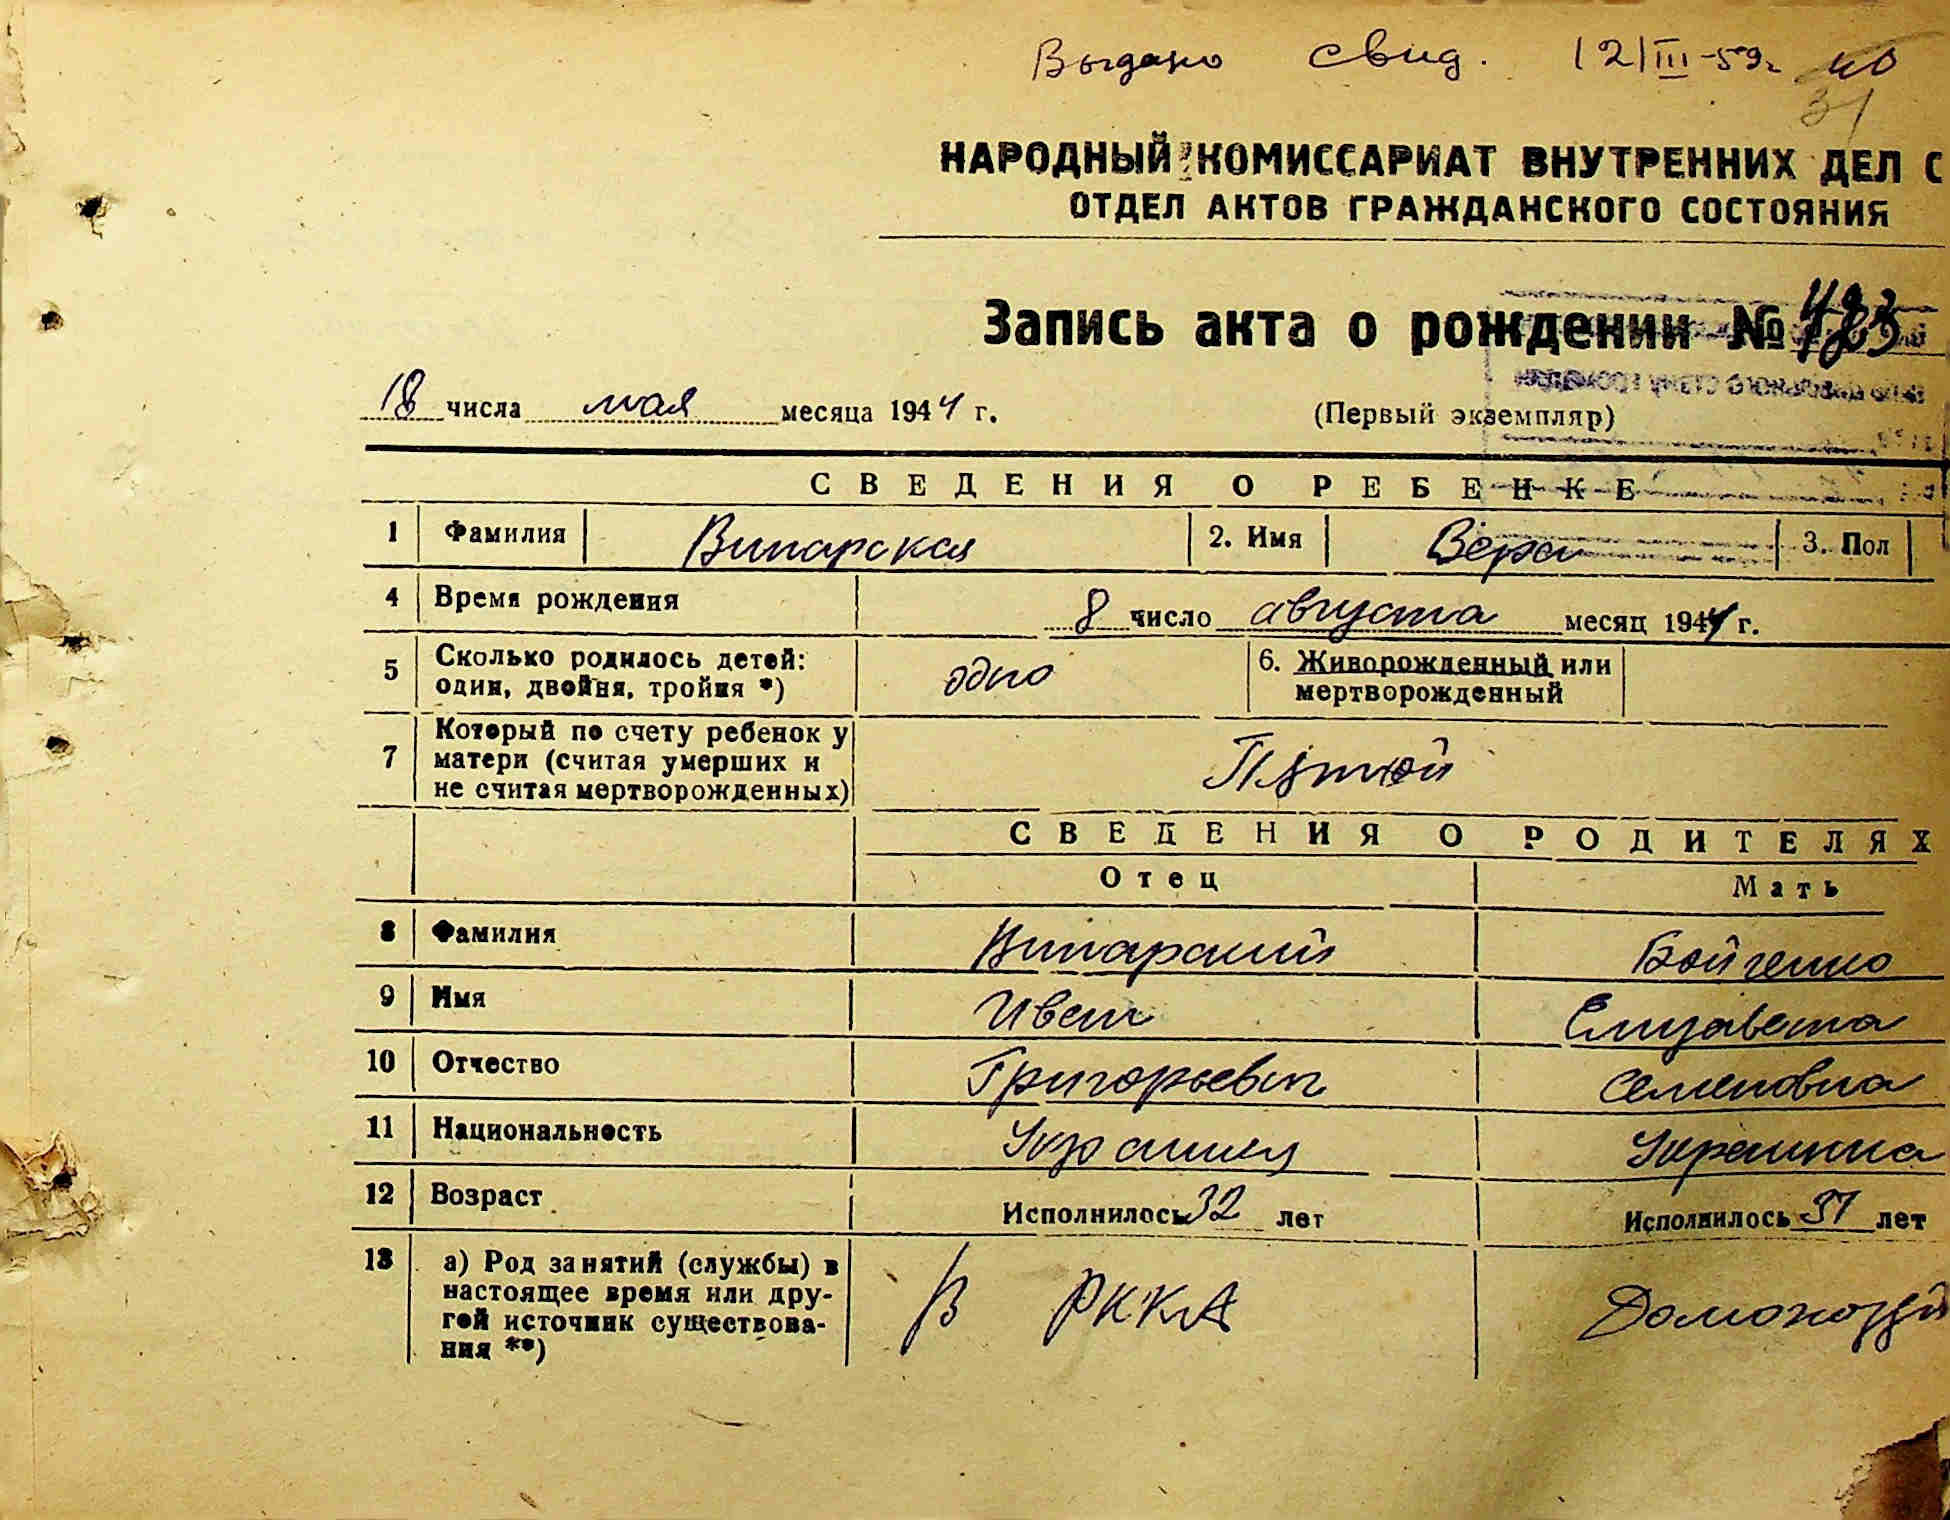 Выдано свид. 12/III-59г.
31
НАРОДНЫЙ КОМИССАРИАТ ВНУТРЕННИХ ДЕЛ С
ОТДЕЛ АКТОВ ГРАЖДАНСКОГО СОСТОЯНИЯ
Запись акта о рождении №
18 числа мая месяца 1944 г. (Первый экземпляр)
СВЕДЕНИЯ О РЕБЕНКЕ
1 Фамилия Винарская 2. Имя Вера 3. Пол
4 Время рождения 8 число августа месяц 1944 г.
5 Сколько родилось детей: один, двойня, тройня *) одно 6. Живорожденный или мертворожденный
7 Который по счету ребенок у матери (считая умерших и не считая мертворожденных) Пятый
СВЕДЕНИЯ О РОДИТЕЛЯХ
Отец Мать
8 Фамилия Винарский Бойченко
9 Имя Иван Елизавета
10 Отчество Григорьевич Семеновна
11 Национальность Украинец Украинка
12 Возраст Исполнилось 32 лет Исполнилось 31 лет
13 а) Род занятий (службы) в настоящее время или другой источник существования **) В РККА Домохозяй